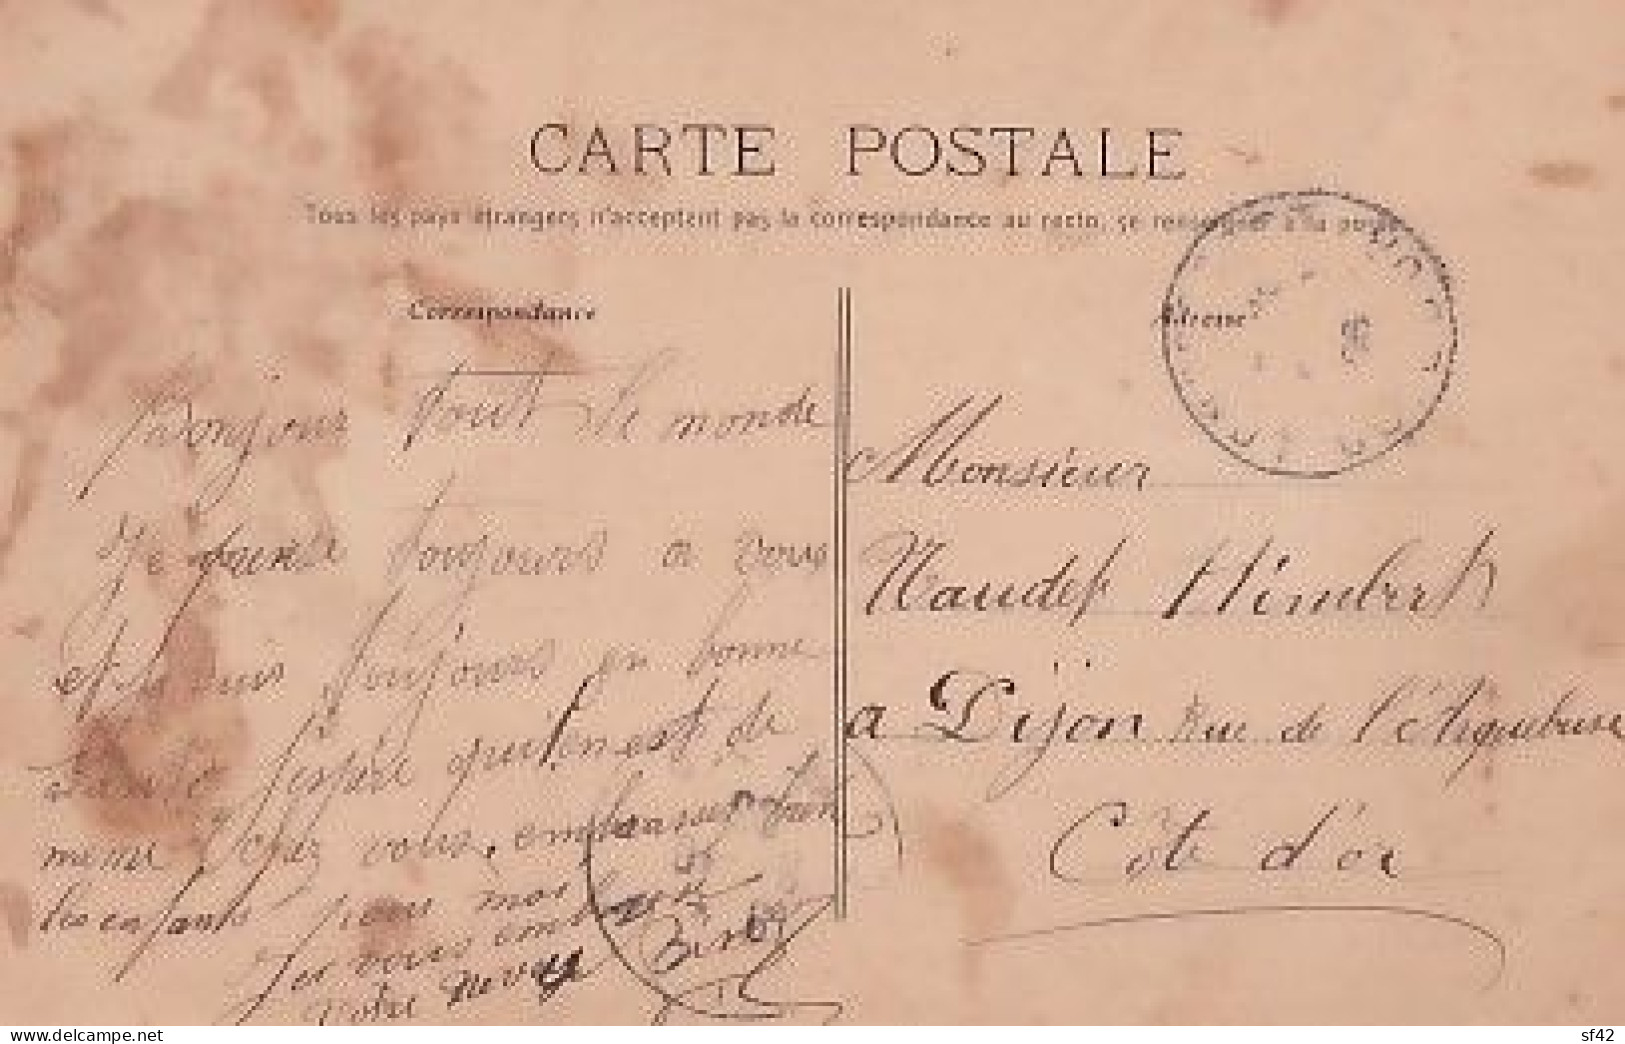 CARTE POSTALE
Tous les pays étrangers n'acceptent pas la correspondance au recto, se renseigner à la poste
Correspondance
Adresse
Bonjour tout le monde
Je pense toujours a vous
et je suis toujours en bonne
sante j'espère qu'il en est de
meme chez vous. embrasser bien
les enfants pour moi
Je vous embrasse
votre neveu
Monsieur
Naudet Himbert
a Dijon Rue de l'Arquebuse
Côte d'or
delcampe.net
sf42